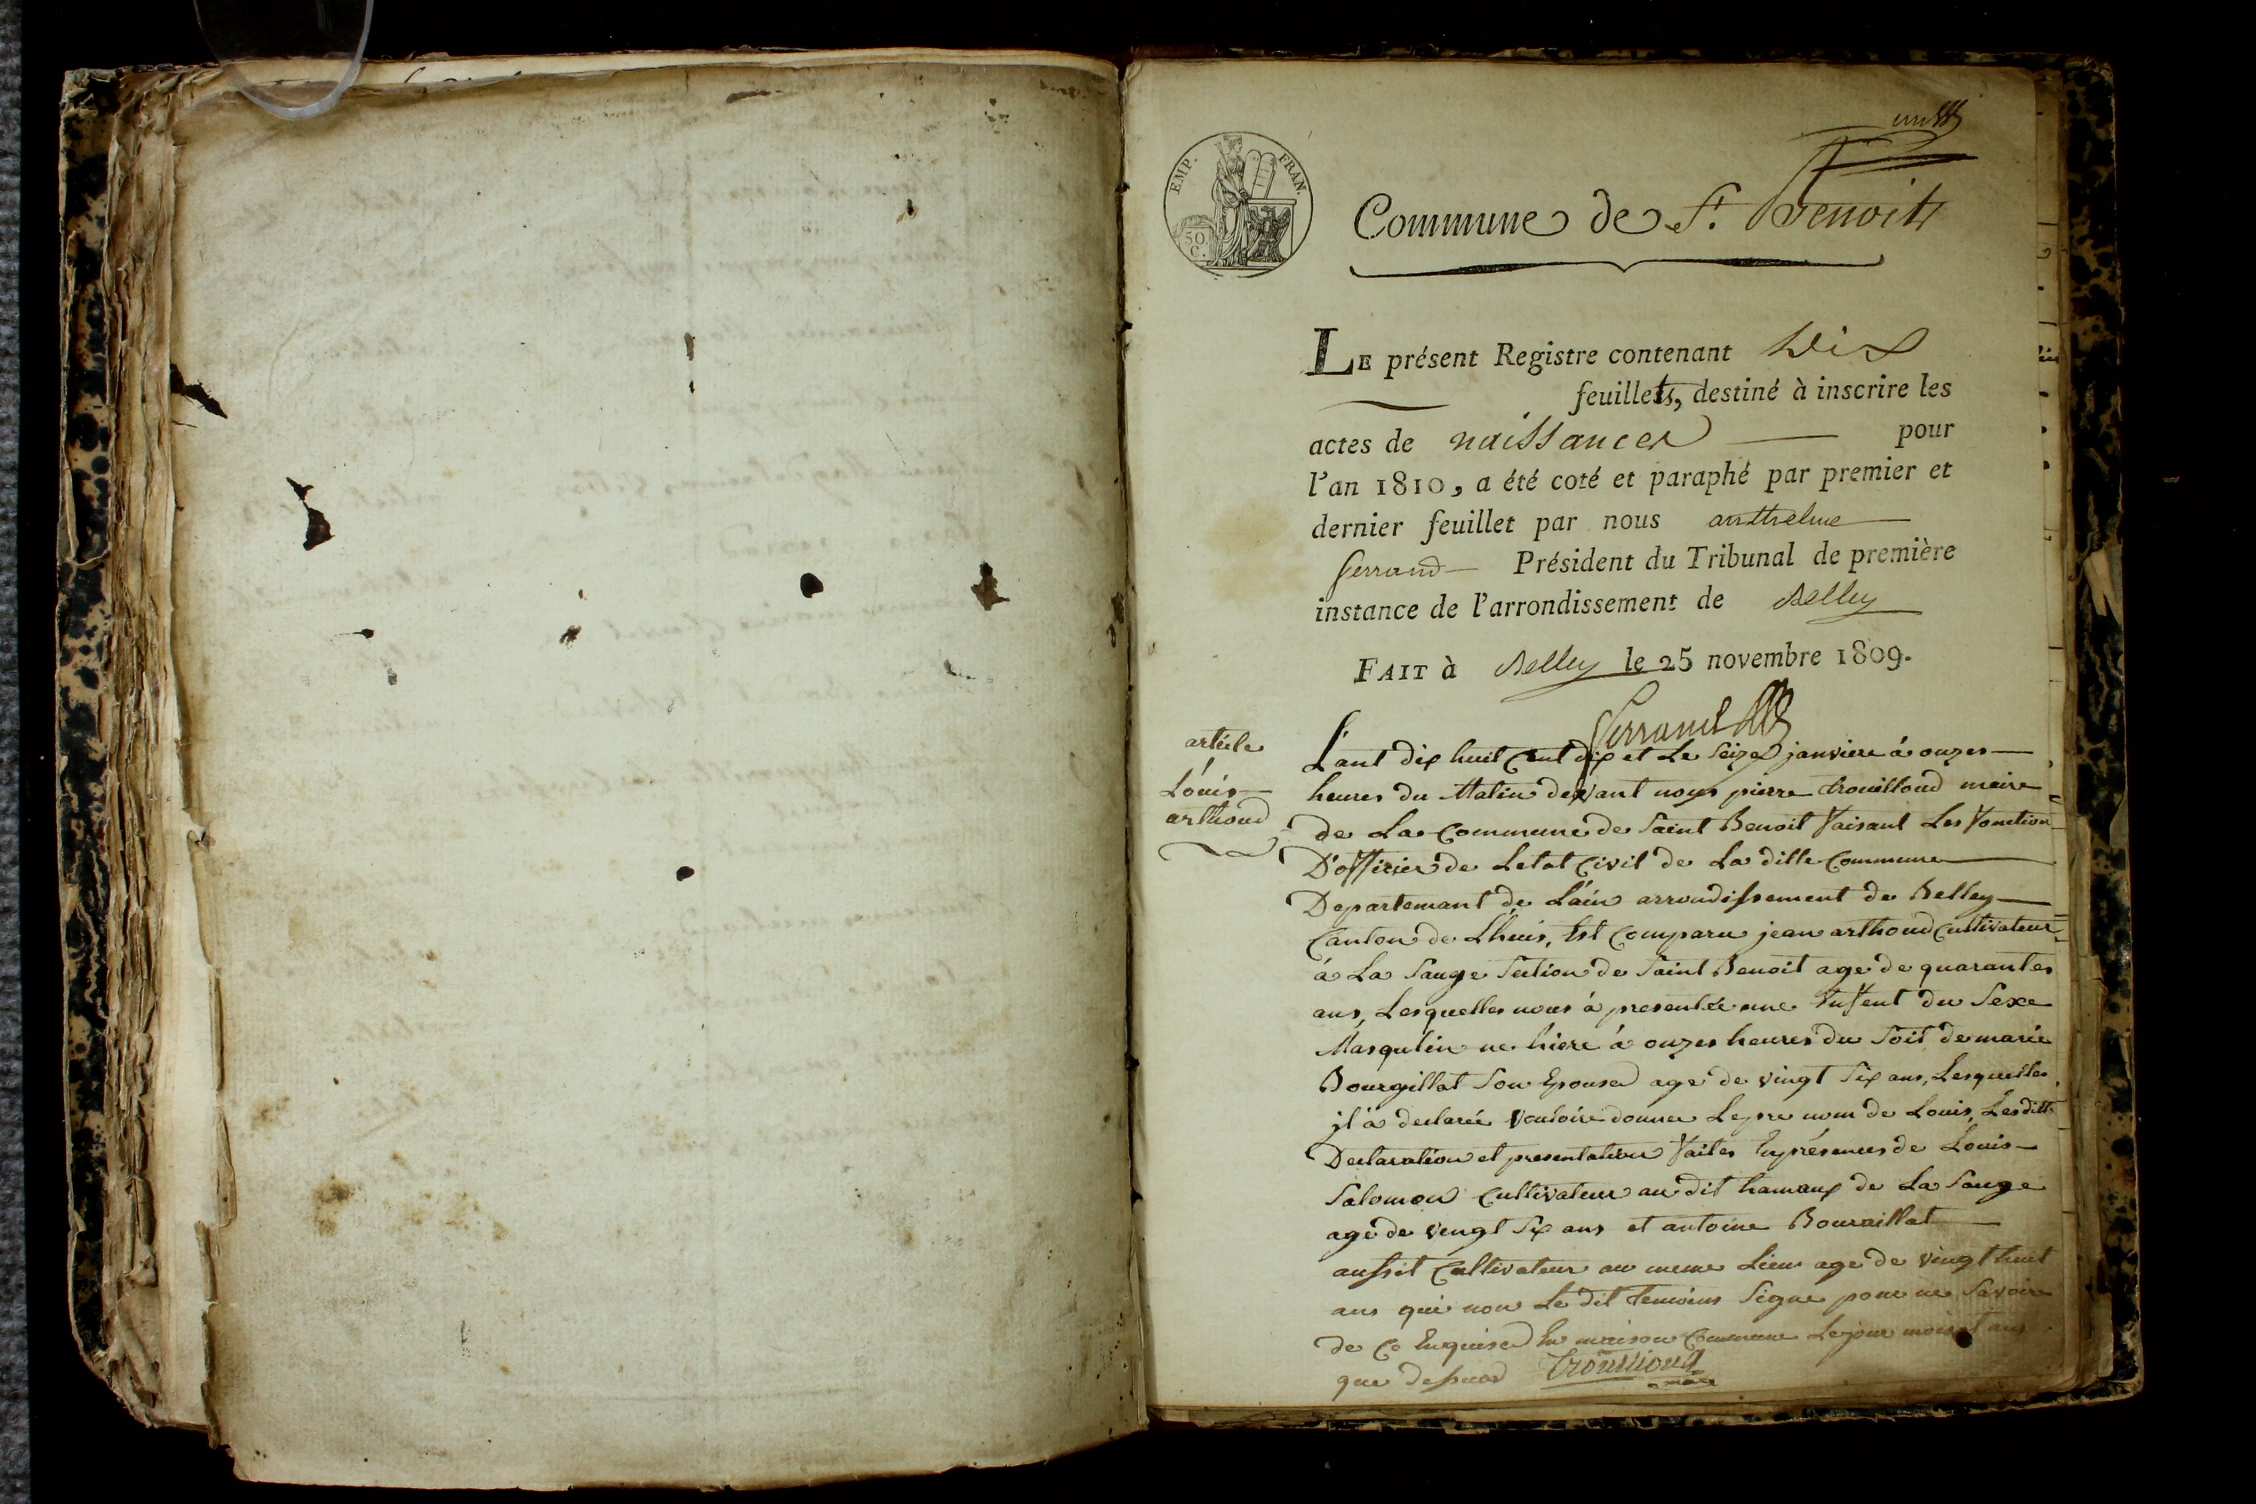 EMP. FRAN.
50 C.
Commune de St. Benoit
LE présent Registre contenant dix
feuillets, destiné à inscrire les
actes de naissances pour
l'an 1810, a été coté et paraphé par premier et
dernier feuillet par nous anthelme
ferrand Président du Tribunal de première
instance de l'arrondissement de Belley
FAIT à Belley le 25 novembre 1809.
ferrand
article
Louis
arthoud
L'ant dix huit Cent dix et Le Seize janviere á onzes
heures du Matin devant nous pierre trouilloud maire
de La Commune de Saint Benoit faisant Les fonction
D'officier de Letat Civil de La ditte Commune
Departemant de L'ain arrondissement de Belley
Canton de Lhuis, Est Comparu jean arthoud Cultivateur
á La Sauge Section de Saint Benoit age de quarantes
ans, Lesquelles nous á presentée une Enfent du Sexe
Masqulin ne hiere á onzes heures du Soit de marie
Bourgillat Son Epouse age de vingt Six ans, Lesquelles
il á declarée Vouloire donner Le pre nom de Louis, Les ditt
Declaration et presentation faites En présences de Louis
Salomon Cultivateur au dit hamaux de La Sauge
agé de vengt Six ans et antoine Bouraillat
aussit Cultivateur au meme Lieu age de vingt huit
ans qui non Le dit temoins Signe pour ne Savoire
de Ce Enquise En maison Commune Le jour mois et ans
que dessus trouilloud
maire